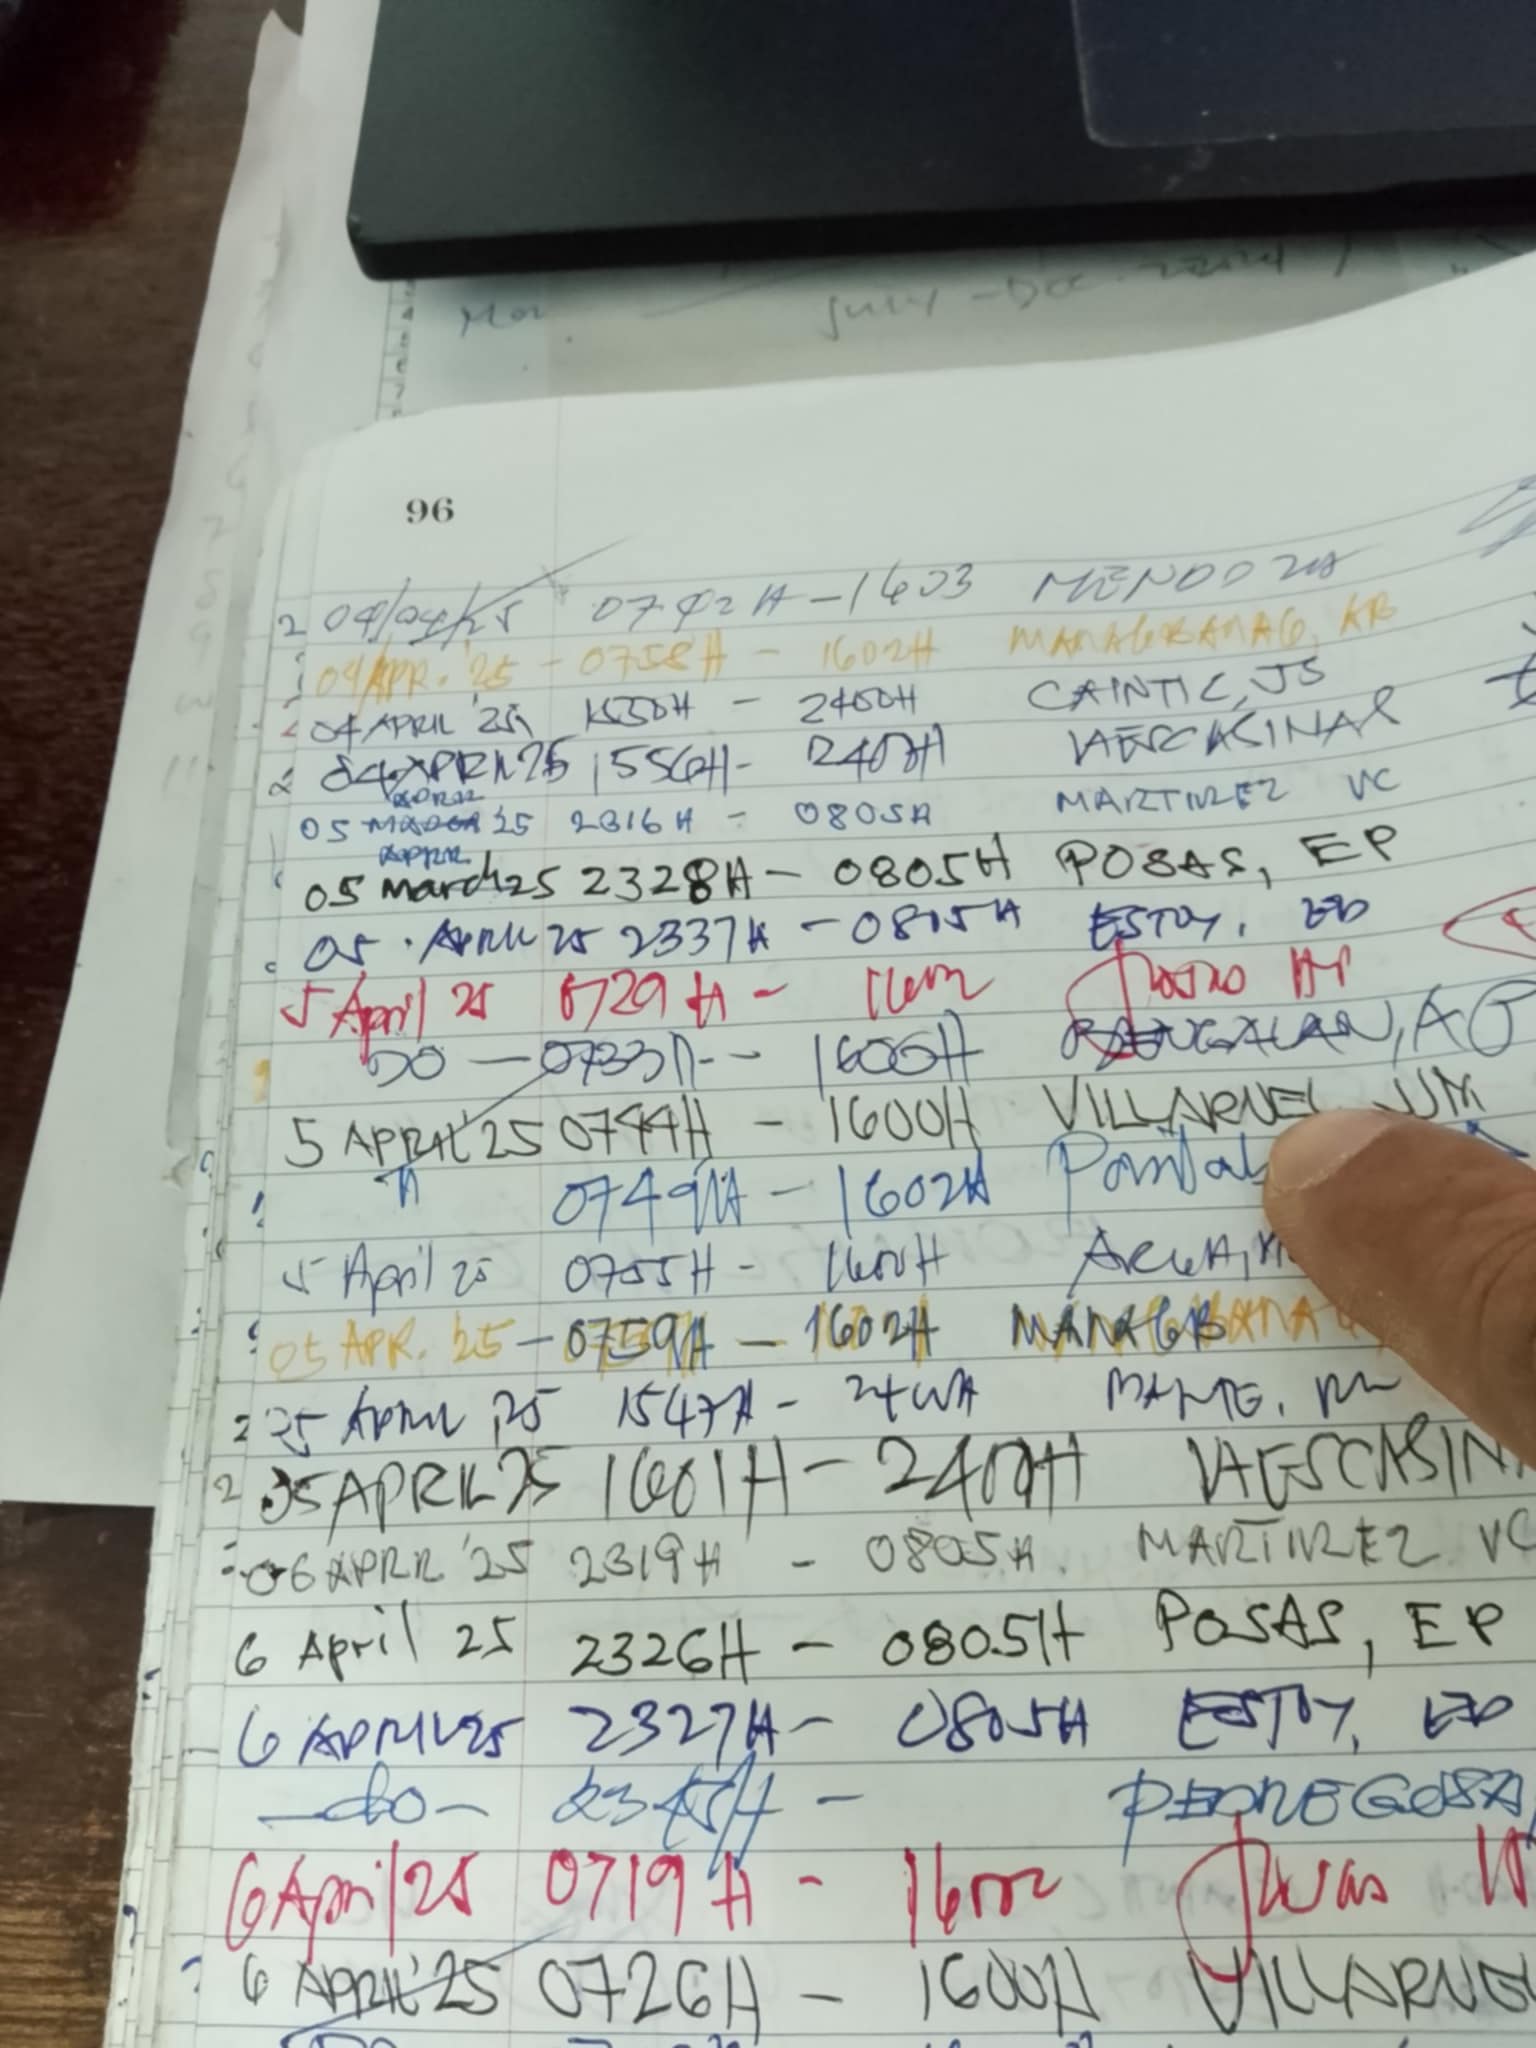 July - Dec. 2024
96
04/04/25 0742H - 1603 MENDOZA
04 APR. '25 - 0758H - 1602H MANAGBANAG, AB
04 APRIL '25 1550H - 2400H CAINTIC, JS
04 APRIL 25 1556H - 2400H VAESCASINAR
APRIL
05 25 2316H - 0805H MARTINEZ VC
APRIL
05 March 25 2328H - 0805H POSAS, EP
05 APRIL 25 2337H - 0805H ESTOY, ED
5 April 25 0729H - 1600
DO - 0733H - 1600H
5 APRIL '25 0744H - 1600H VILLARUEL JM
" 0749H - 1602H
5 April 25 0755H - 1600H
05 APR. '25 - 0759H - 1602H
05 APRIL 25 1547H - 2400H MANTE,
05 APRIL 25 1601H - 2400H VAESCASIN
06 APRIL '25 2319H - 0805H. MARTINEZ VC
6 April 25 2326H - 0805H POSAS, EP
6 APRIL 25 2327H - 0805H ESTOY, ED
-do- 2345H - PEDREGOSA
6 April 25 0719H - 1600
6 APRIL '25 0726H - 1600H VILLARUEL